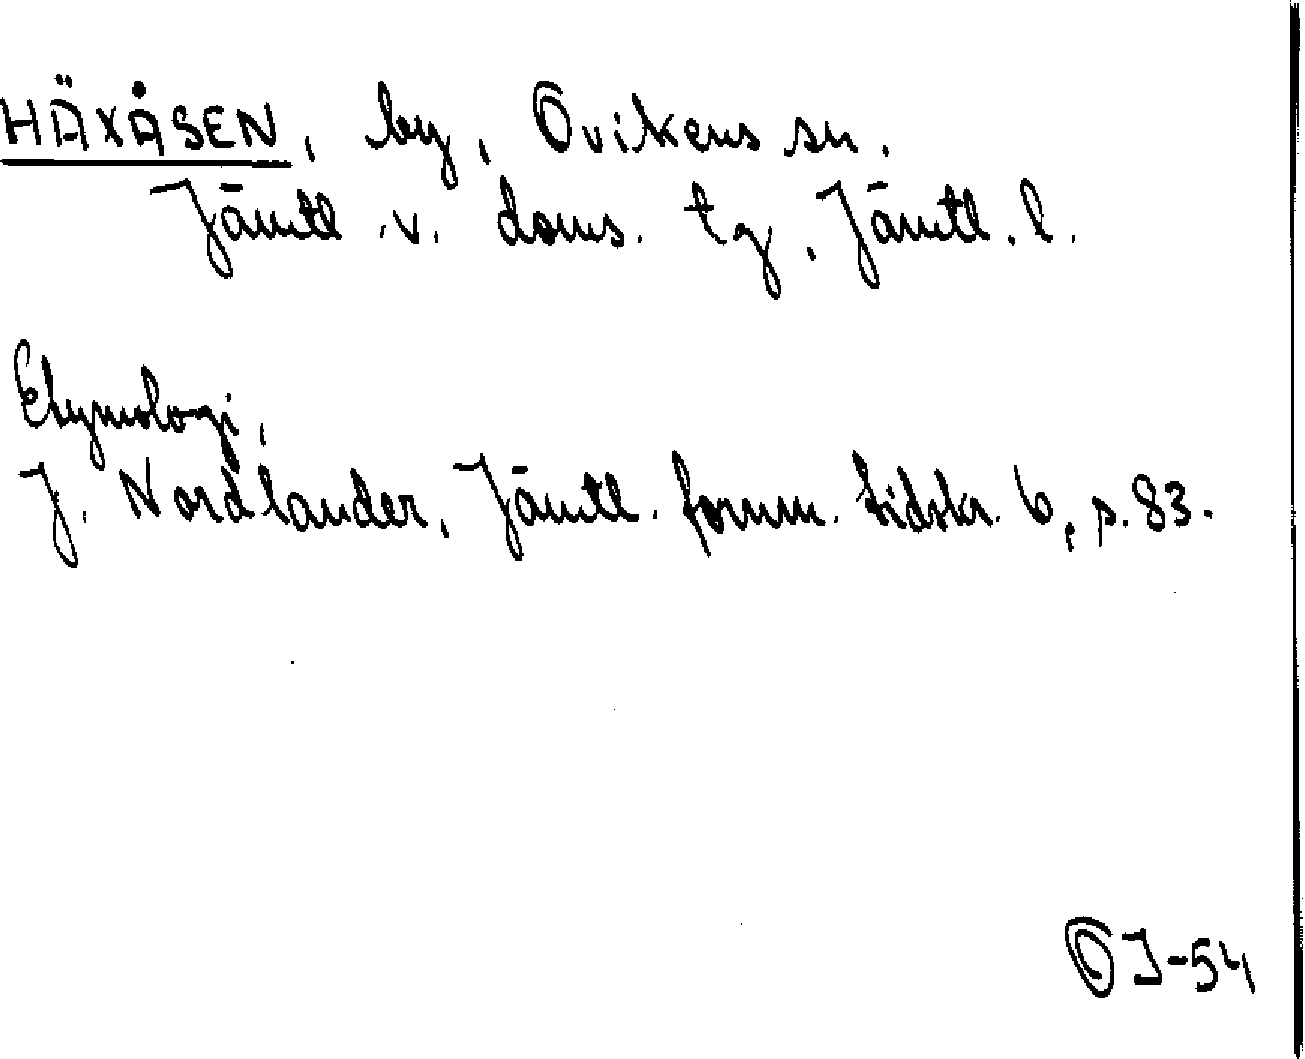 HÄXÅSEN, by, Ovikens sn.
Jämtl. v. doms. tg, Jämtl. l.
Etymologi,
J. Nordlander, Jämtl. fornm. tidskr. 6, s. 83.
OJ-54